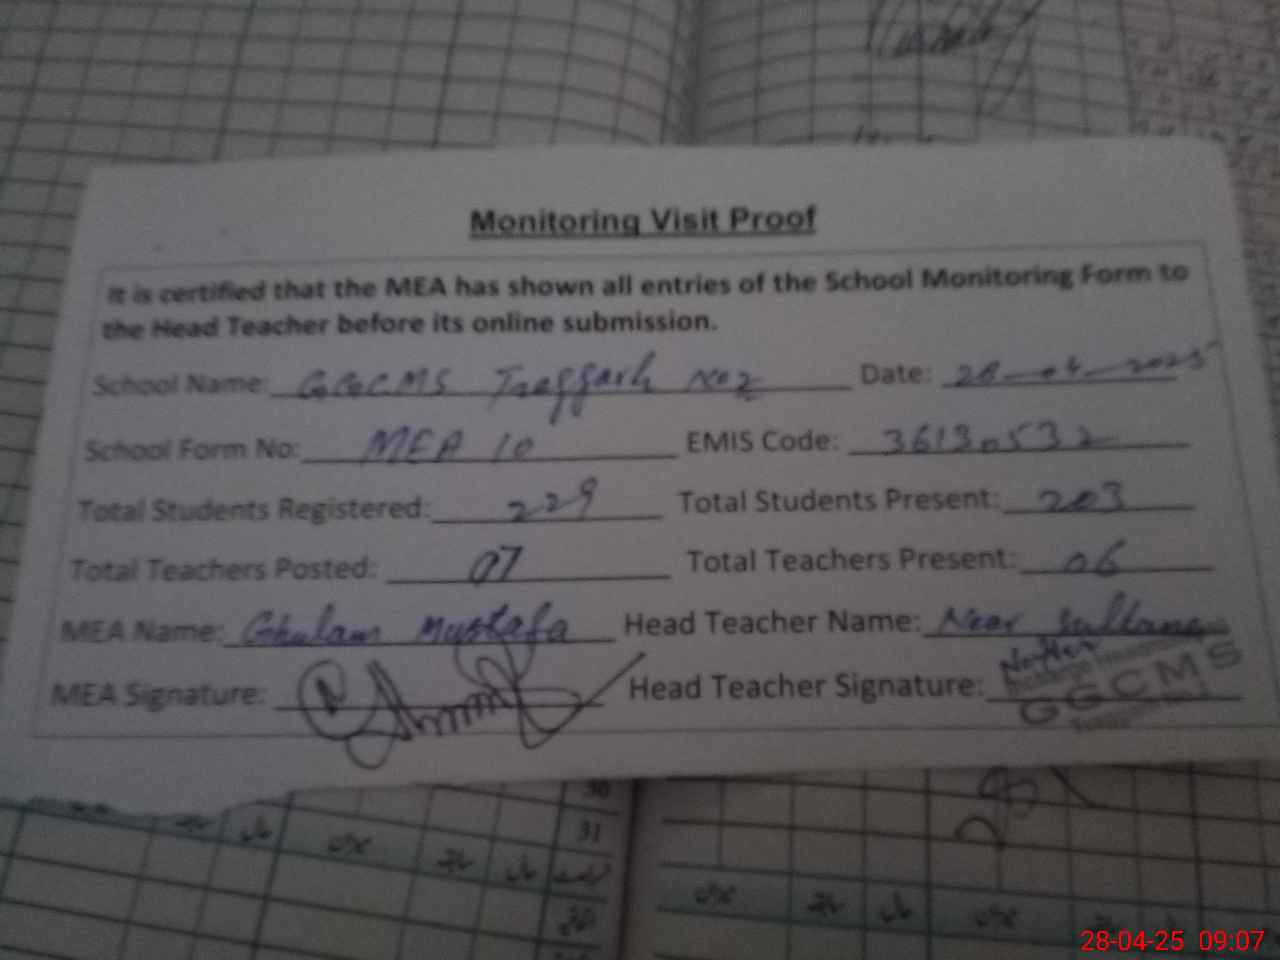 Monitoring Visit Proof
It is certified that the MEA has shown all entries of the School Monitoring Form to
the Head Teacher before its online submission.
School Name: GGCMS Traggarh No 2 Date: 28-04-2025
School Form No: MEA 10 EMIS Code: 36130532
Total Students Registered: 229 Total Students Present: 203
Total Teachers Posted: 07 Total Teachers Present: 06
MEA Name: Ghulam Mustafa Head Teacher Name: Sultana
MEA Signature: Head Teacher Signature:
GGCMS
30
31
28-04-25 09:07